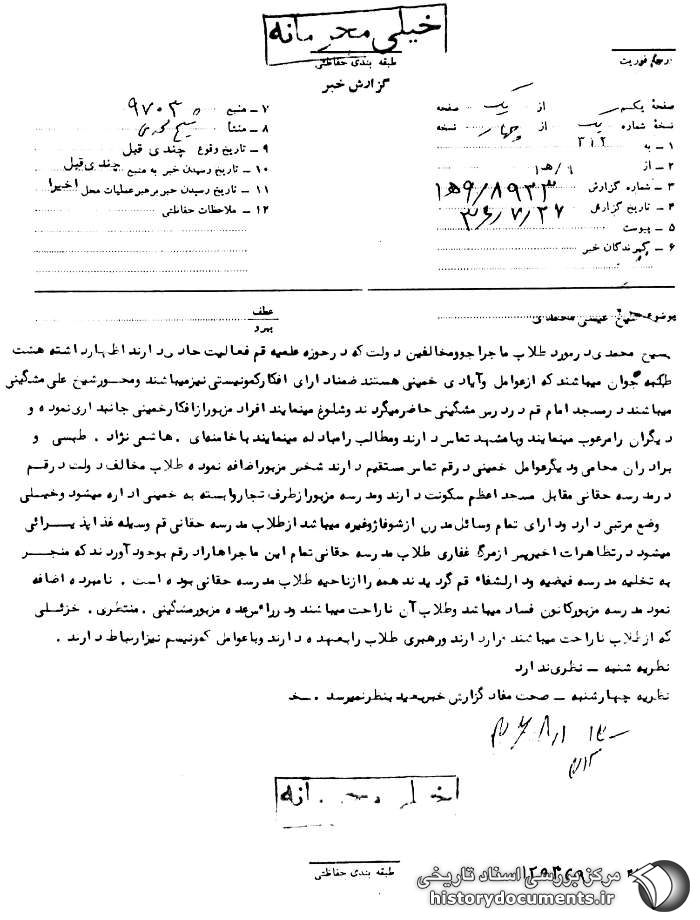 خیلی محرمانه
طبقه بندی حفاظتی
گزارش خبر
درجه فوریت
صفحه یکم از یک صفحه
نسخه شماره یک از چهار نسخه
۱ ـ به ۳۱۲
۲ ـ از ۱/ ه‍ ۱
۳ ـ شماره گزارش ۱ه‍ ۹/۸۹۳۳
۴ ـ تاریخ گزارش ۳۶/۷/۲۷
۵ ـ پیوست
۶ ـ گیرندگان خبر
۷ ـ منبع ۹۷۰۳
۸ ـ منشأ شیخ محمدی
۹ ـ تاریخ وقوع چندی قبل
۱۰ ـ تاریخ رسیدن خبر به منبع چندی قبل
۱۱ ـ تاریخ رسیدن خبر برهبر عملیات محل اخیرا
۱۲ ـ ملاحظات حفاظتی
موضوع شیخ عیسی محمدی
عطف
پیرو
شیخ محمدی در مورد طلاب ماجراجو و مخالفین دولت که در حوزه علمیه قم فعالیت حادی دارند اظهار داشته هشت
طلبه جوان میباشند که از عوامل و ایادی خمینی هستند ضمنا دارای افکار کمونیستی نیز میباشند و محور شیخ علی مشگینی
میباشند در مسجد امام قم در درس مشگینی حاضر میگردند و شلوغ مینمایند افراد مزبور از افکار خمینی جانبداری نموده و
دیگران را مرعوب مینمایند و با مشهد تماس دارند و مطالب را مبادله مینمایند با خامنه‌ای . هاشمی نژاد . طبسی و
برادران محامی و دیگر عوامل خمینی در قم تماس مستقیم دارند شخص مزبور اضافه نموده طلاب مخالف دولت در قم
در مدرسه حقانی مقابل مسجد اعظم سکونت دارند و مدرسه مزبور از طرف تجار وابسته به خمینی اداره میشود و خیلی
وضع مرتبی دارد و دارای تمام وسائل مدرن از شوفاژ و غیره میباشد از طلاب مدرسه حقانی قم وسیله غذا پذیرائی
میشود در تظاهرات اخیر پس از مرگ غفاری طلاب مدرسه حقانی تمام این ماجراها را در قم بوجود آوردند که منجر
به تخلیه مدرسه فیضیه و دارالشفاء قم گردیدند همه را از ناحیه طلاب مدرسه حقانی بوده است . نامبرده اضافه
نمود مدرسه مزبور کانون فساد میباشد و طلاب آن ناراحت میباشند و در راس عده مزبور مشگینی . منتظری . خزئلی
که از طلاب ناراحت میباشند قرار دارند و رهبری طلاب را بعهده دارند و با عوامل کمونیسم نیز ارتباط دارند .
نظریه شنبه ـ نظری ندارد
نظریه چهارشنبه ـ صحت مفاد گزارش خبر بعید بنظر نمیرسد .
۳۱۲
طبقه بندی حفاظتی
مرکز بررسی اسناد تاریخی
historydocuments.ir